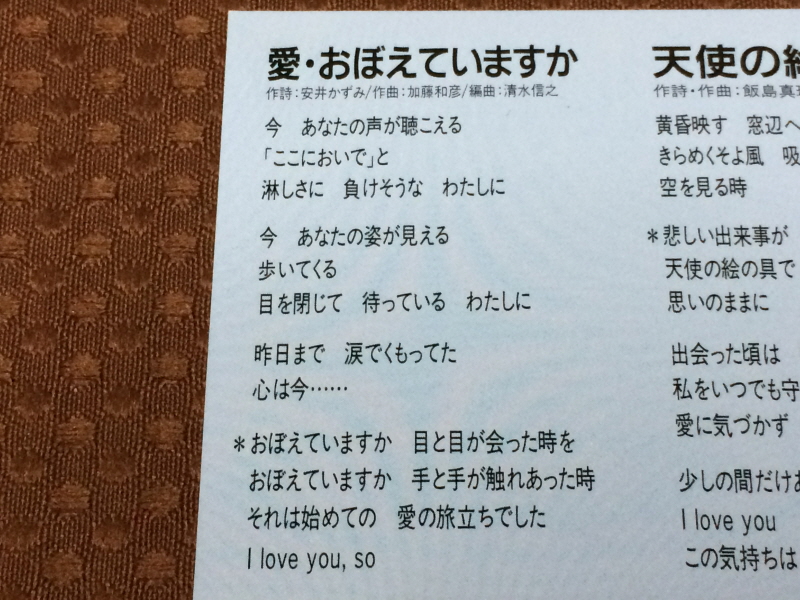 愛・おぼえていますか
作詩：安井かずみ/作曲：加藤和彦/編曲：清水信之
今　あなたの声が聴こえる
「ここにおいで」と
淋しさに　負けそうな　わたしに
今　あなたの姿が見える
歩いてくる
目を閉じて　待っている　わたしに
昨日まで　涙でくもってた
心は今……
＊おぼえていますか　目と目が会った時を
おぼえていますか　手と手が触れあった時
それは始めての　愛の旅立ちでした
I love you, so
天使の絵
作詩・作曲：飯島真
黄昏映す　窓辺へ
きらめくそよ風　吸
空を見る時
＊悲しい出来事が
天使の絵の具で
思いのままに
出会った頃は
私をいつでも守
愛に気づかず
少しの間だけ
I love you
この気持ちは